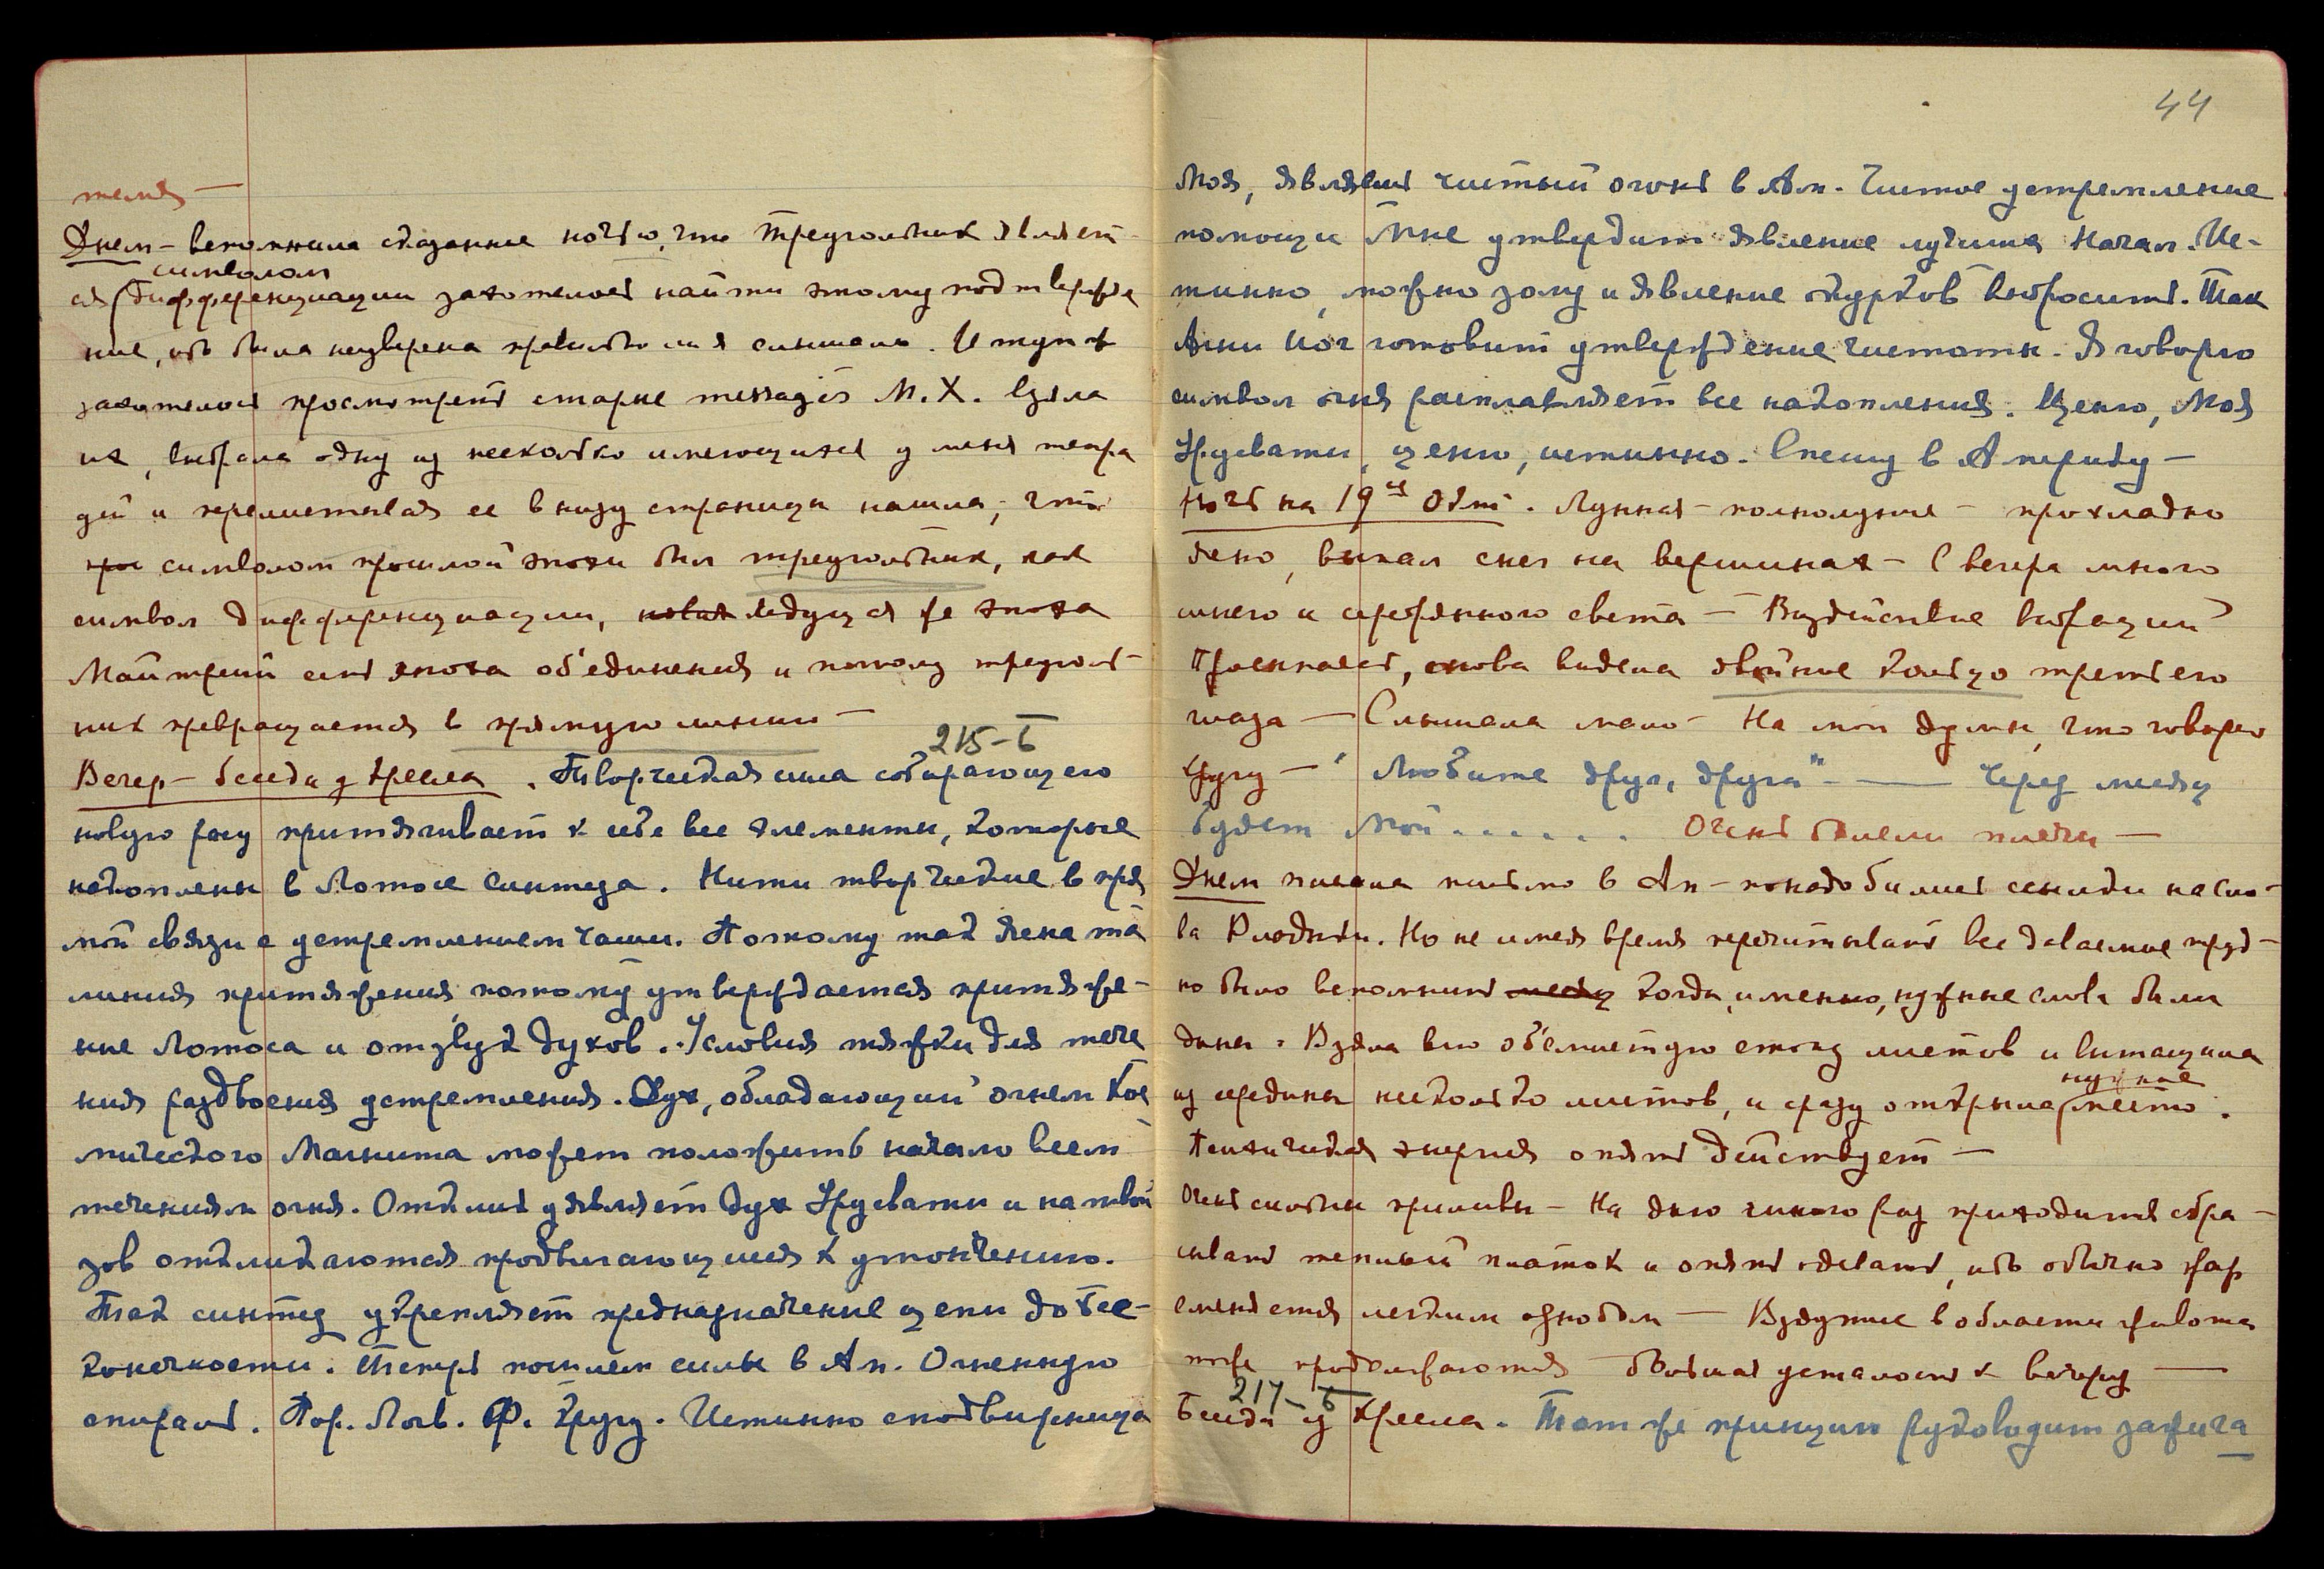 теля —
Днем – вспомнила сказанное ночью, что треугольник являет-
символом
ся дифференциации захотелось найти этому подтвержде
ние, ибо была неуверена правильно ли я слышала. И тут ж
захотелось просмотреть старые messages М.Х. Взяла
их, выбрала одну из несколько имеющихся у меня тетра
дей и перелистывая ее внизу страницы нашла, что
символом прошлой эпохи был треугольник, как
символ дифференциации, новая ведущая же эпоха
Майтрейи есть эпоха об'единения и потому треуголь-
ник превращается в прямую линии —
215-Б
Вечер – беседа у кресла. Творческая сила собирающего
новую расу притягивает к себе все элементы, которые
накоплены в Лотосе синтеза. Нити творческие в пря
мой связи с устремлением чаши. Потому так ясна та
линия притяжения, потому утверждается притяже-
ние Лотоса и отзвук духов. Условия тяжки для тече
ния раздвоения устремления. Дух, обладающий огнем Кос
мического Магнита может положить начало всем
течениям огня. Отклик уявляет дух Урусвати и на твой
зов откликаются продвигающиеся к утончению.
Так синтез укрепляет предназначение цепи до бес-
конечности. Теперь пошлем силы в Ам. Огненную
спираль. Пор. Лог. Ф. Кругу. Истинно сподвижница
44
Моя, являешь чистый огонь в Ам. Чистое устремление
помощи Мне утвердит явление лучших начал. Ис-
тинно, можно золу и явление окурков выбросить. Так
Агни Йог готовит утверждение чистоты. Я говорю
символ огня расплавляет все накопления. Ценю, Моя
Урусвати, ценю, истинно. Спешу в Америку —
Ночь на 19ое Окт. Лунная – полнолуние – прохладно
ясно, выпал снег на вершинах – С вечера много
синего и серебряного света — Воздействие вибраций
Проснулась, снова видела двойное кольцо третьего
глаза — Слышала мало – На мои думы, что говорю
кругу — "Любите друг, друга" — Через месяц
будет Мой....... Очень болели плечи —
Днем писала письмо в Ам – понадобились ссылки на сло-
ва Владыки. Но не имея время перечитывать все даваемое труд-
но было вспомнить месяц когда, именно, нужные слова были
даны. Взяла всю об'емистую стопку листов и вытащила
нужное
из середины несколько листов, и сразу открыла место.
Психическая энергия опять действует —
Очень сильны приливы – На дню много раз приходится сбра-
сывать теплый платок и опять одевать, ибо обычно жар
сменяется легким ознобом — Вздутие в области живота
тоже продолжаются большая усталость к вечеру —
217-Б
Беседа у кресла. Тот же принцип руководит зажига